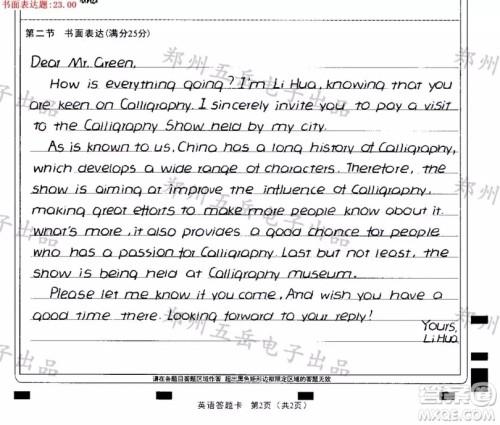 书面表达题:23.00
第二节 书面表达(满分25分)
Dear Mr. Green,
How is everything going? I'm Li Hua, knowing that you
are keen on Calligraphy. I sincerely invite you to pay a visit
to the Calligraphy Show held by my city.
As is known to us, China has a long history of Calligraphy,
which develops a wide range of characters. Therefore, the
show is aiming at improve the influence of Calligraphy,
making great efforts to make more people know about it.
what's more, it also provides a good chance for people
who has a passion for Calligraphy. Last but not least, the
show is being held at Calligraphy museum.
Please let me know if you come, And wish you have a
good time there. Looking forward to your reply!
Yours,
Li Hua
郑州五岳电子出品
请在各题目答题区域作答 超出黑色矩形边框限定区域的答题无效
英语答题卡 第2页 (共2页)